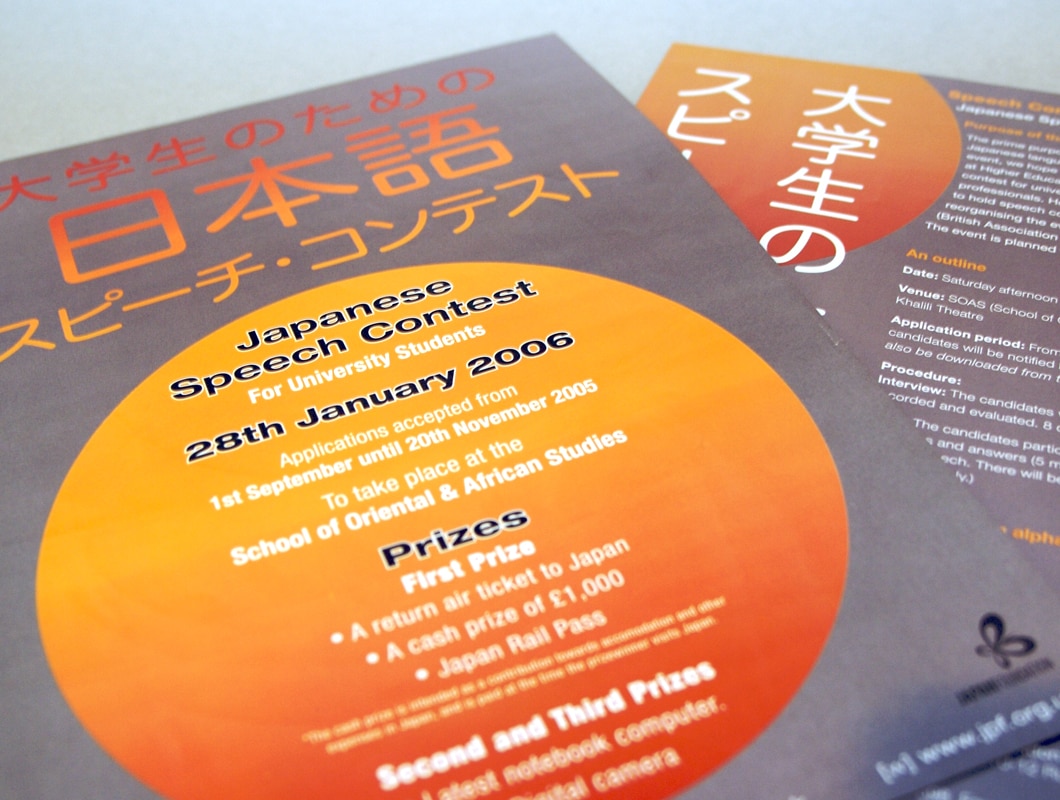 大学生のための
日本語
スピーチ・コンテスト
Japanese
Speech Contest
For University Students
28th January 2006
Applications accepted from
1st September until 20th November 2005
To take place at the
School of Oriental & African Studies
Prizes
First Prize
• A return air ticket to Japan
• A cash prize of £1,000
• Japan Rail Pass
*The cash prize is intended as a contribution towards accomodation and other
expenses in Japan, and is paid at the time the prizewinner visits Japan.
Second and Third Prizes
Latest notebook computer.
Digital camera
JAPAN FOUNDATION
[w] www.jpf.org.
大学生の
スピ
Speech Co
Japanese Sp
Purpose of th
The prime purp
Japanese lang
event, we hope
of Higher Educ
contest for unive
professionals. H
to hold speech c
reorganising the e
(British Association
The event is planned
An outline
Date: Saturday afternoon
Venue: SOAS (School of
Khalili Theatre
Application period: From
candidates will be notified
also be downloaded from
Procedure:
Interview: The candidates
corded and evaluated. 8 c
The candidates partic
s and answers (5 m
ech. There will be
ly.)
alpha